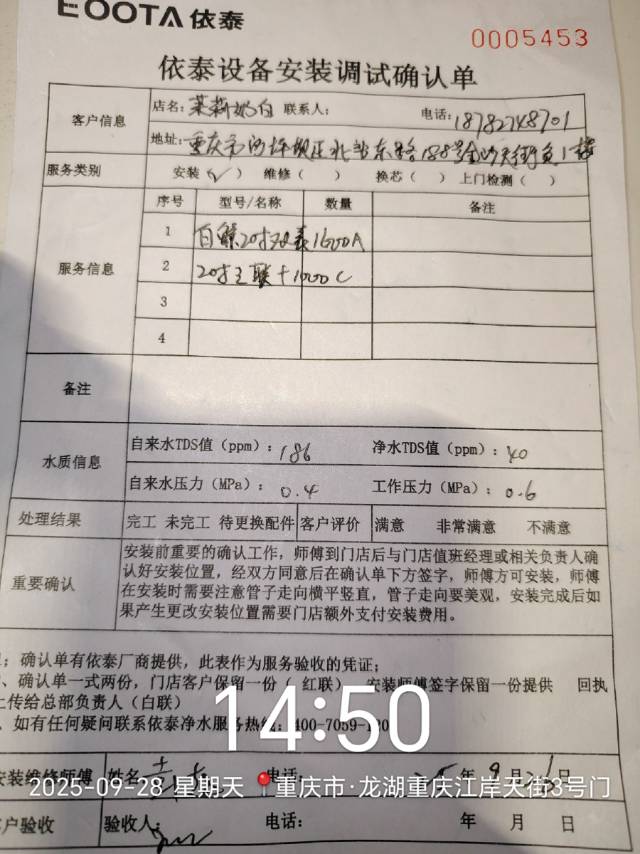 EOOTA 依泰
0005453
依泰设备安装调试确认单
客户信息
店名: 茉莉奶白 联系人: 电话: 18782748701
地址: 重庆市 北 东路188号金沙天街负1楼
服务类别 安装(✓) 维修( ) 换芯( ) 上门检测( )
服务信息
序号 型号/名称 数量 备注
1 白鲸20寸 1600A
2 20寸三联+1000C
3
4
备注
水质信息
自来水TDS值（ppm）: 186 净水TDS值（ppm）: 40
自来水压力（MPa）: 0.4 工作压力（MPa）: 0.6
处理结果 完工 未完工 待更换配件 客户评价 满意 非常满意 不满意
重要确认
安装前重要的确认工作，师傅到门店后与门店值班经理或相关负责人确
认好安装位置，经双方同意后在确认单下方签字，师傅方可安装，师傅
在安装时需要注意管子走向横平竖直，管子走向要美观，安装完成后如
果产生更改安装位置需要门店额外支付安装费用。
：确认单有依泰厂商提供，此表作为服务验收的凭证；
、确认单一式两份，门店客户保留一份（ 红联） 安装师傅签字保留一份提供 回执
上传给总部负责人（白联）
、如有任何疑问联系依泰净水服务热线：400-7059-
14:50
安装维修师傅 姓名: 电话: 年 9 月 日
2025-09-28 星期天 重庆市·龙湖重庆江岸天街3号门
客户验收 验收人: 电话: 年 月 日